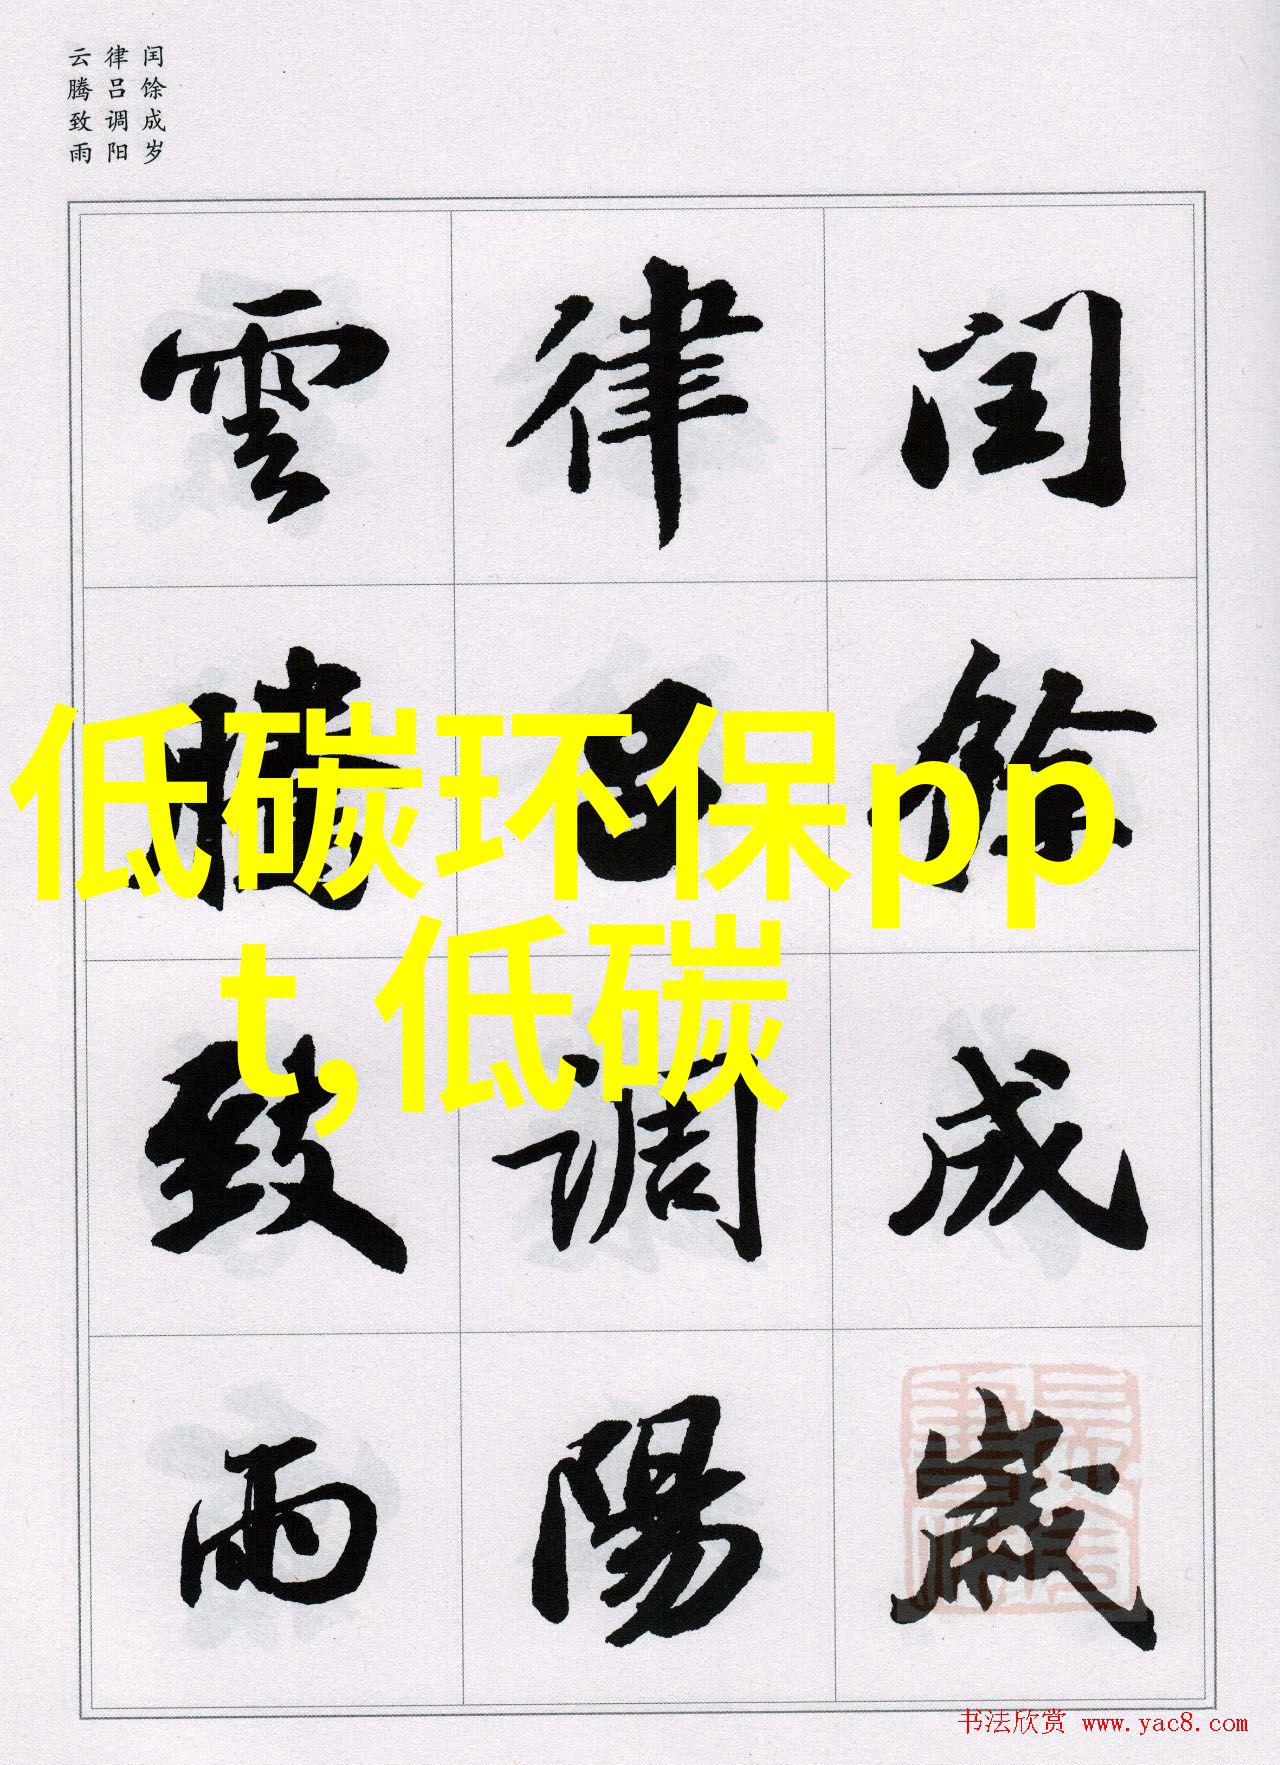 闰馀成岁
律吕调阳
云腾致雨
閏餘成歲
律吕調陽
雲騰致雨
低碳环保pp
t,低碳
书法欣赏 www.yac8.com